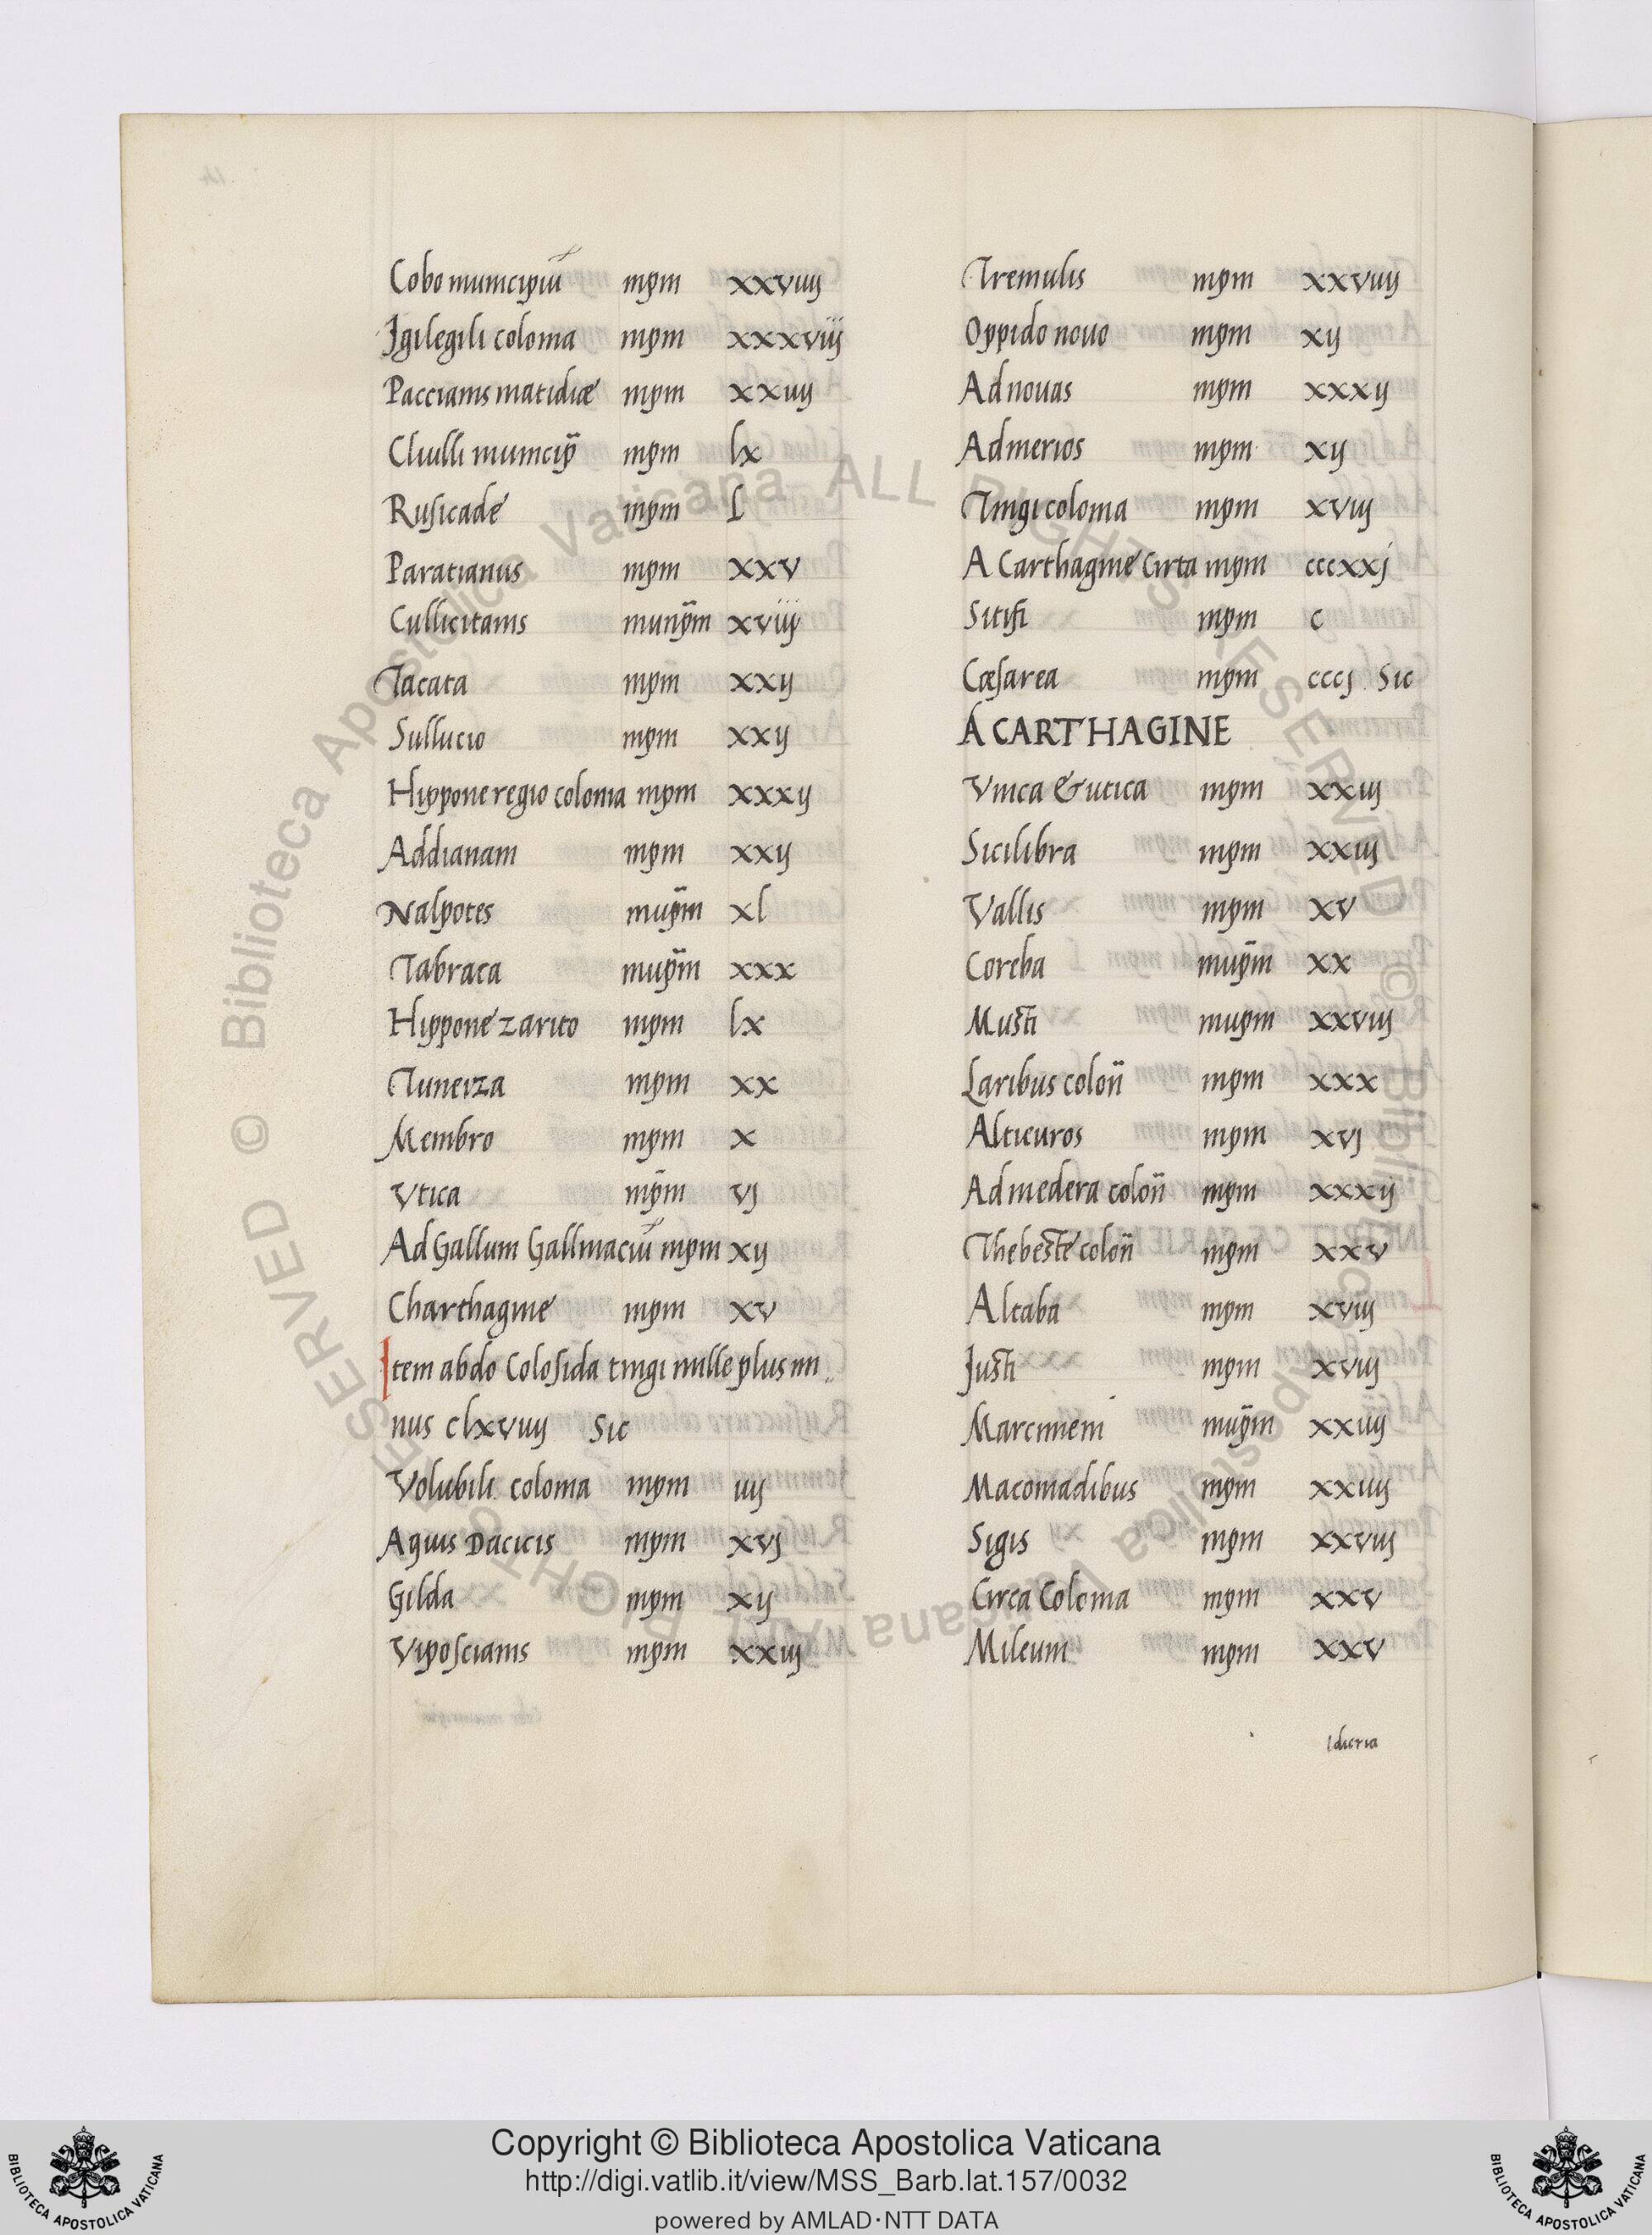 Cobo municipiũ mpm xxviiij
Igilegili colonia mpm xxxviij
Paccianis matidiæ mpm xxiiij
Chulli municip̃ mpm lx
Rusicade mpm L
Paratianus mpm xxv
Cullicitanis munp̃m xviij
Tacata mpm xxij
Sullucio mpm xxij
Hippone regio colonia mpm xxxij
Addianam mpm xxij
Nalpotes mup̃m xl
Tabraca mup̃m xxx
Hippone zarito mpm lx
Tuneiza mpm xx
Membro mpm x
Vtica mp̃m vj
Ad Gallum Gallinaciũ mpm xij
Charthagine mpm xv
Item abdo Colosida tingi mille plus mi
nus clxviiij Sic
Volubili colonia mpm iiij
Aquis Dacicis mpm xvj
Gilda mpm xij
Viposcianis mpm xxiij
Tremulis mpm xxviiij
Oppido nouo mpm xij
Ad nouas mpm xxxij
Admerios mpm xij
Tingi colonia mpm xviij
A Carthagine Cirta mpm cccxxj
Sitifi mpm c
Cæsarea mpm cccj Sic
A CARTHAGINE
Vnica & utica mpm xxiij
Sicilibra mpm xxiij
Vallis mpm xv
Coreba mup̃m xx
Musti mupm xxviij
Laribus colon̄ mpm xxx
Altieuros mpm xvj
Admedera colon̄ mpm xxxij
Thebeste colon̄ mpm xxv
Altaba mpm xviij
Justi mpm xviij
Marcimeni mup̃m xxiiij
Macomadibus mpm xxiiij
Sigis mpm xxviij
Circa Colonia mpm xxv
Mileum mpm xxv
Idicria
© Biblioteca Apostolica Vaticana ALL RIGHTS RESERVED © Biblioteca Apostolica Vaticana ALL RIGHTS RESERVED
Copyright © Biblioteca Apostolica Vaticana
http://digi.vatlib.it/view/MSS_Barb.lat.157/0032
powered by AMLAD·NTT DATA
BIBLIOTECA APOSTOLICA VATICANA
BIBLIOTECA APOSTOLICA VATICANA